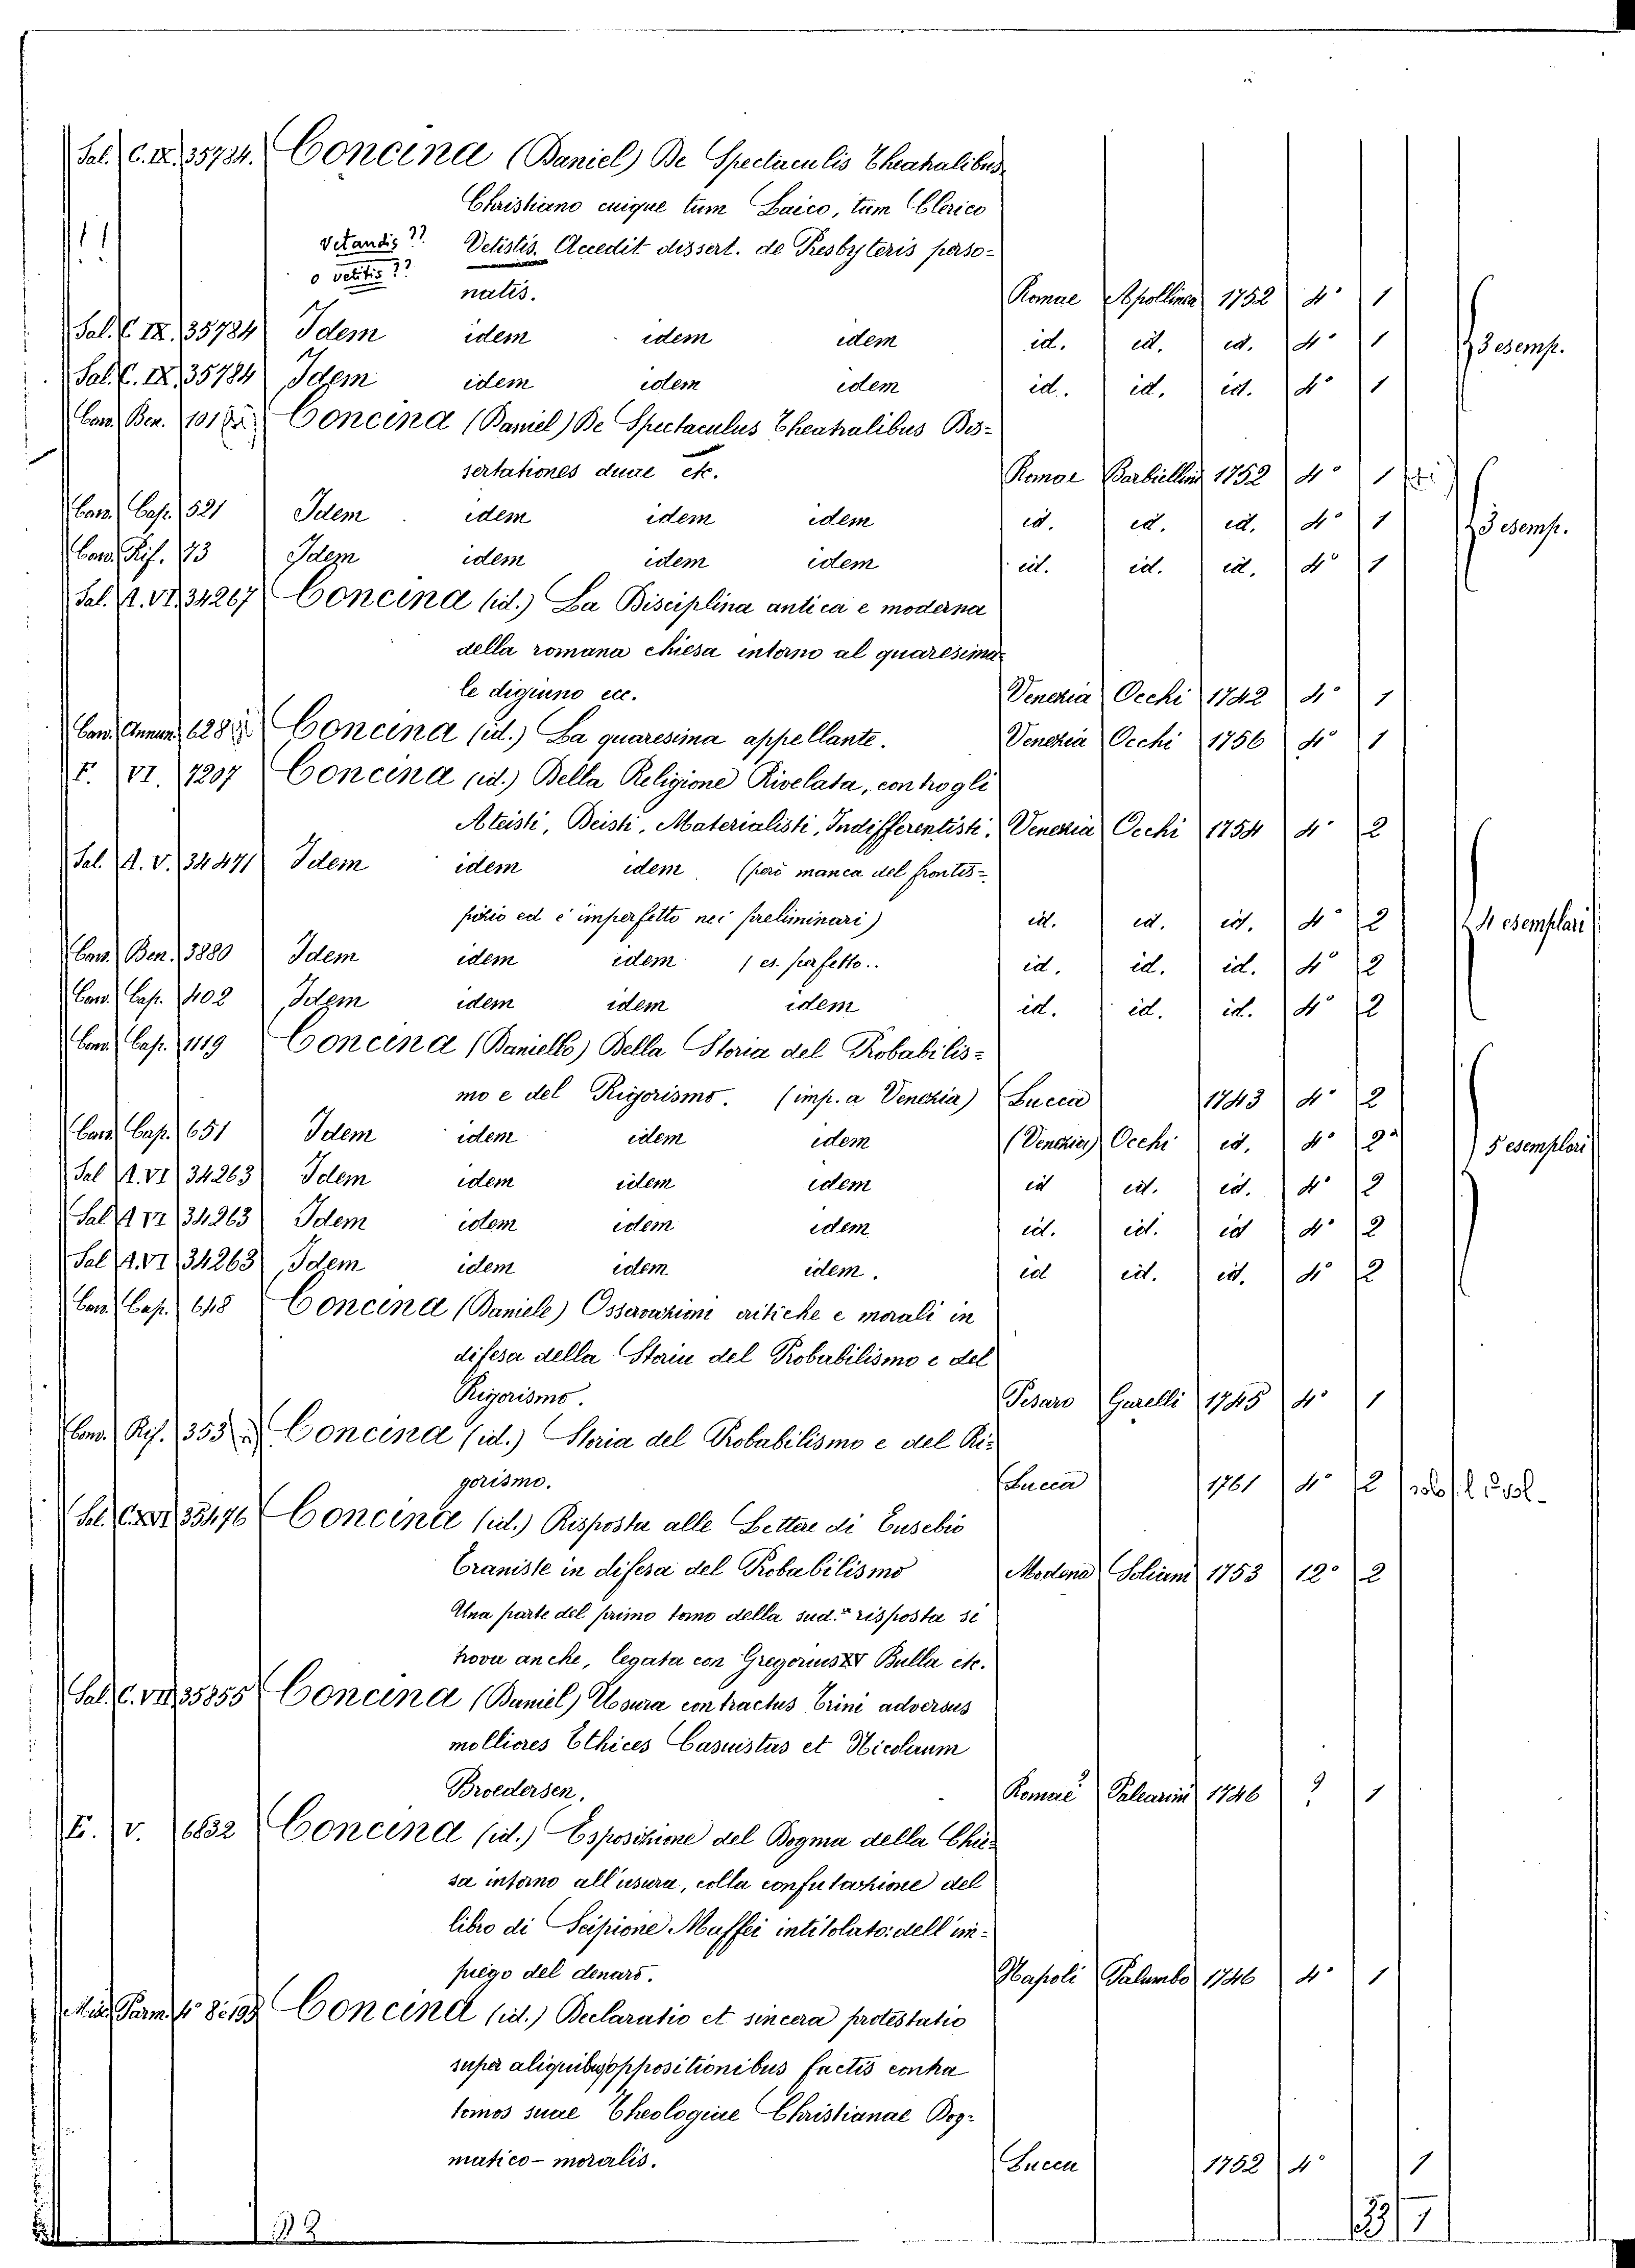 Sal. C. IX. 35784. Concina (Daniel) De Spectaculis Theatralibus
Christiano cuique tum Laico, tum Clerico
vetandis?? Vetistis. Accedit dissert. de Presbyteris perso-
o vetitis??
natis. Romae Apollinea 1752 4° 1
Sal. C. IX. 35784 Idem idem idem idem id. id. id. 4° 1 3 esemp.
Sal. C. IX. 35784 Idem idem idem idem id. id. id. 4° 1
Conv. Ben. 101 Concina (Daniel) De Spectaculus Theatralibus Dis-
sertationes duae etc. Romae Barbiellini 1752 4° 1
Conv. Cap. 521 Idem idem idem idem id. id. id. 4° 1 3 esemp.
Conv. Rif. 73 Idem idem idem idem id. id. id. 4° 1
Sal. A. VI. 34267 Concina (id.) La Disciplina antica e moderna
della romana chiesa intorno al quaresima-
le digiuno ecc. Venezia Occhi 1742 4° 1
Conv. Annun. 628 Concina (id.) La quaresima appellante. Venezia Occhi 1756 4° 1
F. VI. 7207 Concina (id.) Della Religione Rivelata, contro gli
Ateisti, Deisti, Materialisti, Indifferentisti. Venezia Occhi 1754 4° 2
Sal. A. V. 34471 Idem idem idem (però manca del frontis-
pizio ed è imperfetto nei preliminari) id. id. id. 4° 2 4 esemplari
Conv. Ben. 3880 Idem idem idem 1 es. perfetto.. id. id. id. 4° 2
Conv. Cap. 402 Idem idem idem idem id. id. id. 4° 2
Conv. Cap. 1119 Concina (Daniello) Della Storia del Probabilis-
mo e del Rigorismo. (imp. a Venezia) Lucca 1743 4° 2
Conv. Cap. 651 Idem idem idem idem (Venezia) Occhi id. 4° 2 5 esemplari
Sal A. VI 34263 Idem idem idem idem id id. id. 4° 2
Sal A VI 34263 Idem idem idem idem id. id. id 4° 2
Sal A. VI 34263 Idem idem idem idem. id id. id. 4° 2
Conv. Cap. 648 Concina (Daniele) Osservazioni critiche e morali in
difesa della Storia del Probabilismo e del
Rigorismo. Pesaro Gavelli 1745 4° 1
Conv. Rif. 353 Concina (id.) Storia del Probabilismo e del Ri-
gorismo. Lucca 1761 4° 2
Sal. C. XVI 35476 Concina (id.) Risposta alle Lettere di Eusebio
Eraniste in difesa del Probabilismo Modena Soliani 1753 12° 2
Una parte del primo tomo della sud.ª risposta si
trova anche, legata con Gregorius XV Bulla etc.
Sal. C. VII 35855 Concina (Daniel) Usura contractus Trini adversus
molliores Ethices Casuistas et Nicolaum
Broedersen. Romae Palearini 1746 ? 1
F. V. 6832 Concina (id.) Esposizione del Dogma della Chie-
sa intorno all'usura, colla confutazione del
libro di Scipione Maffei intitolato: dell'im-
piego del denaro. Napoli Palumbo 1746 4° 1
Misc. Parm. 4° Concina (id.) Declaratio et sincera protestatio
super aliquibus oppositionibus factis contra
tomos suae Theologiae Christianae Dog-
matico-moralis. Lucca 1752 4° 1